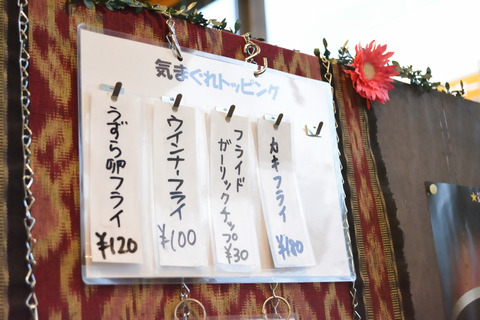 気まぐれトッピング
うずら卵フライ
¥120
ウインナーフライ
¥100
フライド
ガーリックチップ
¥30
カキフライ
¥180